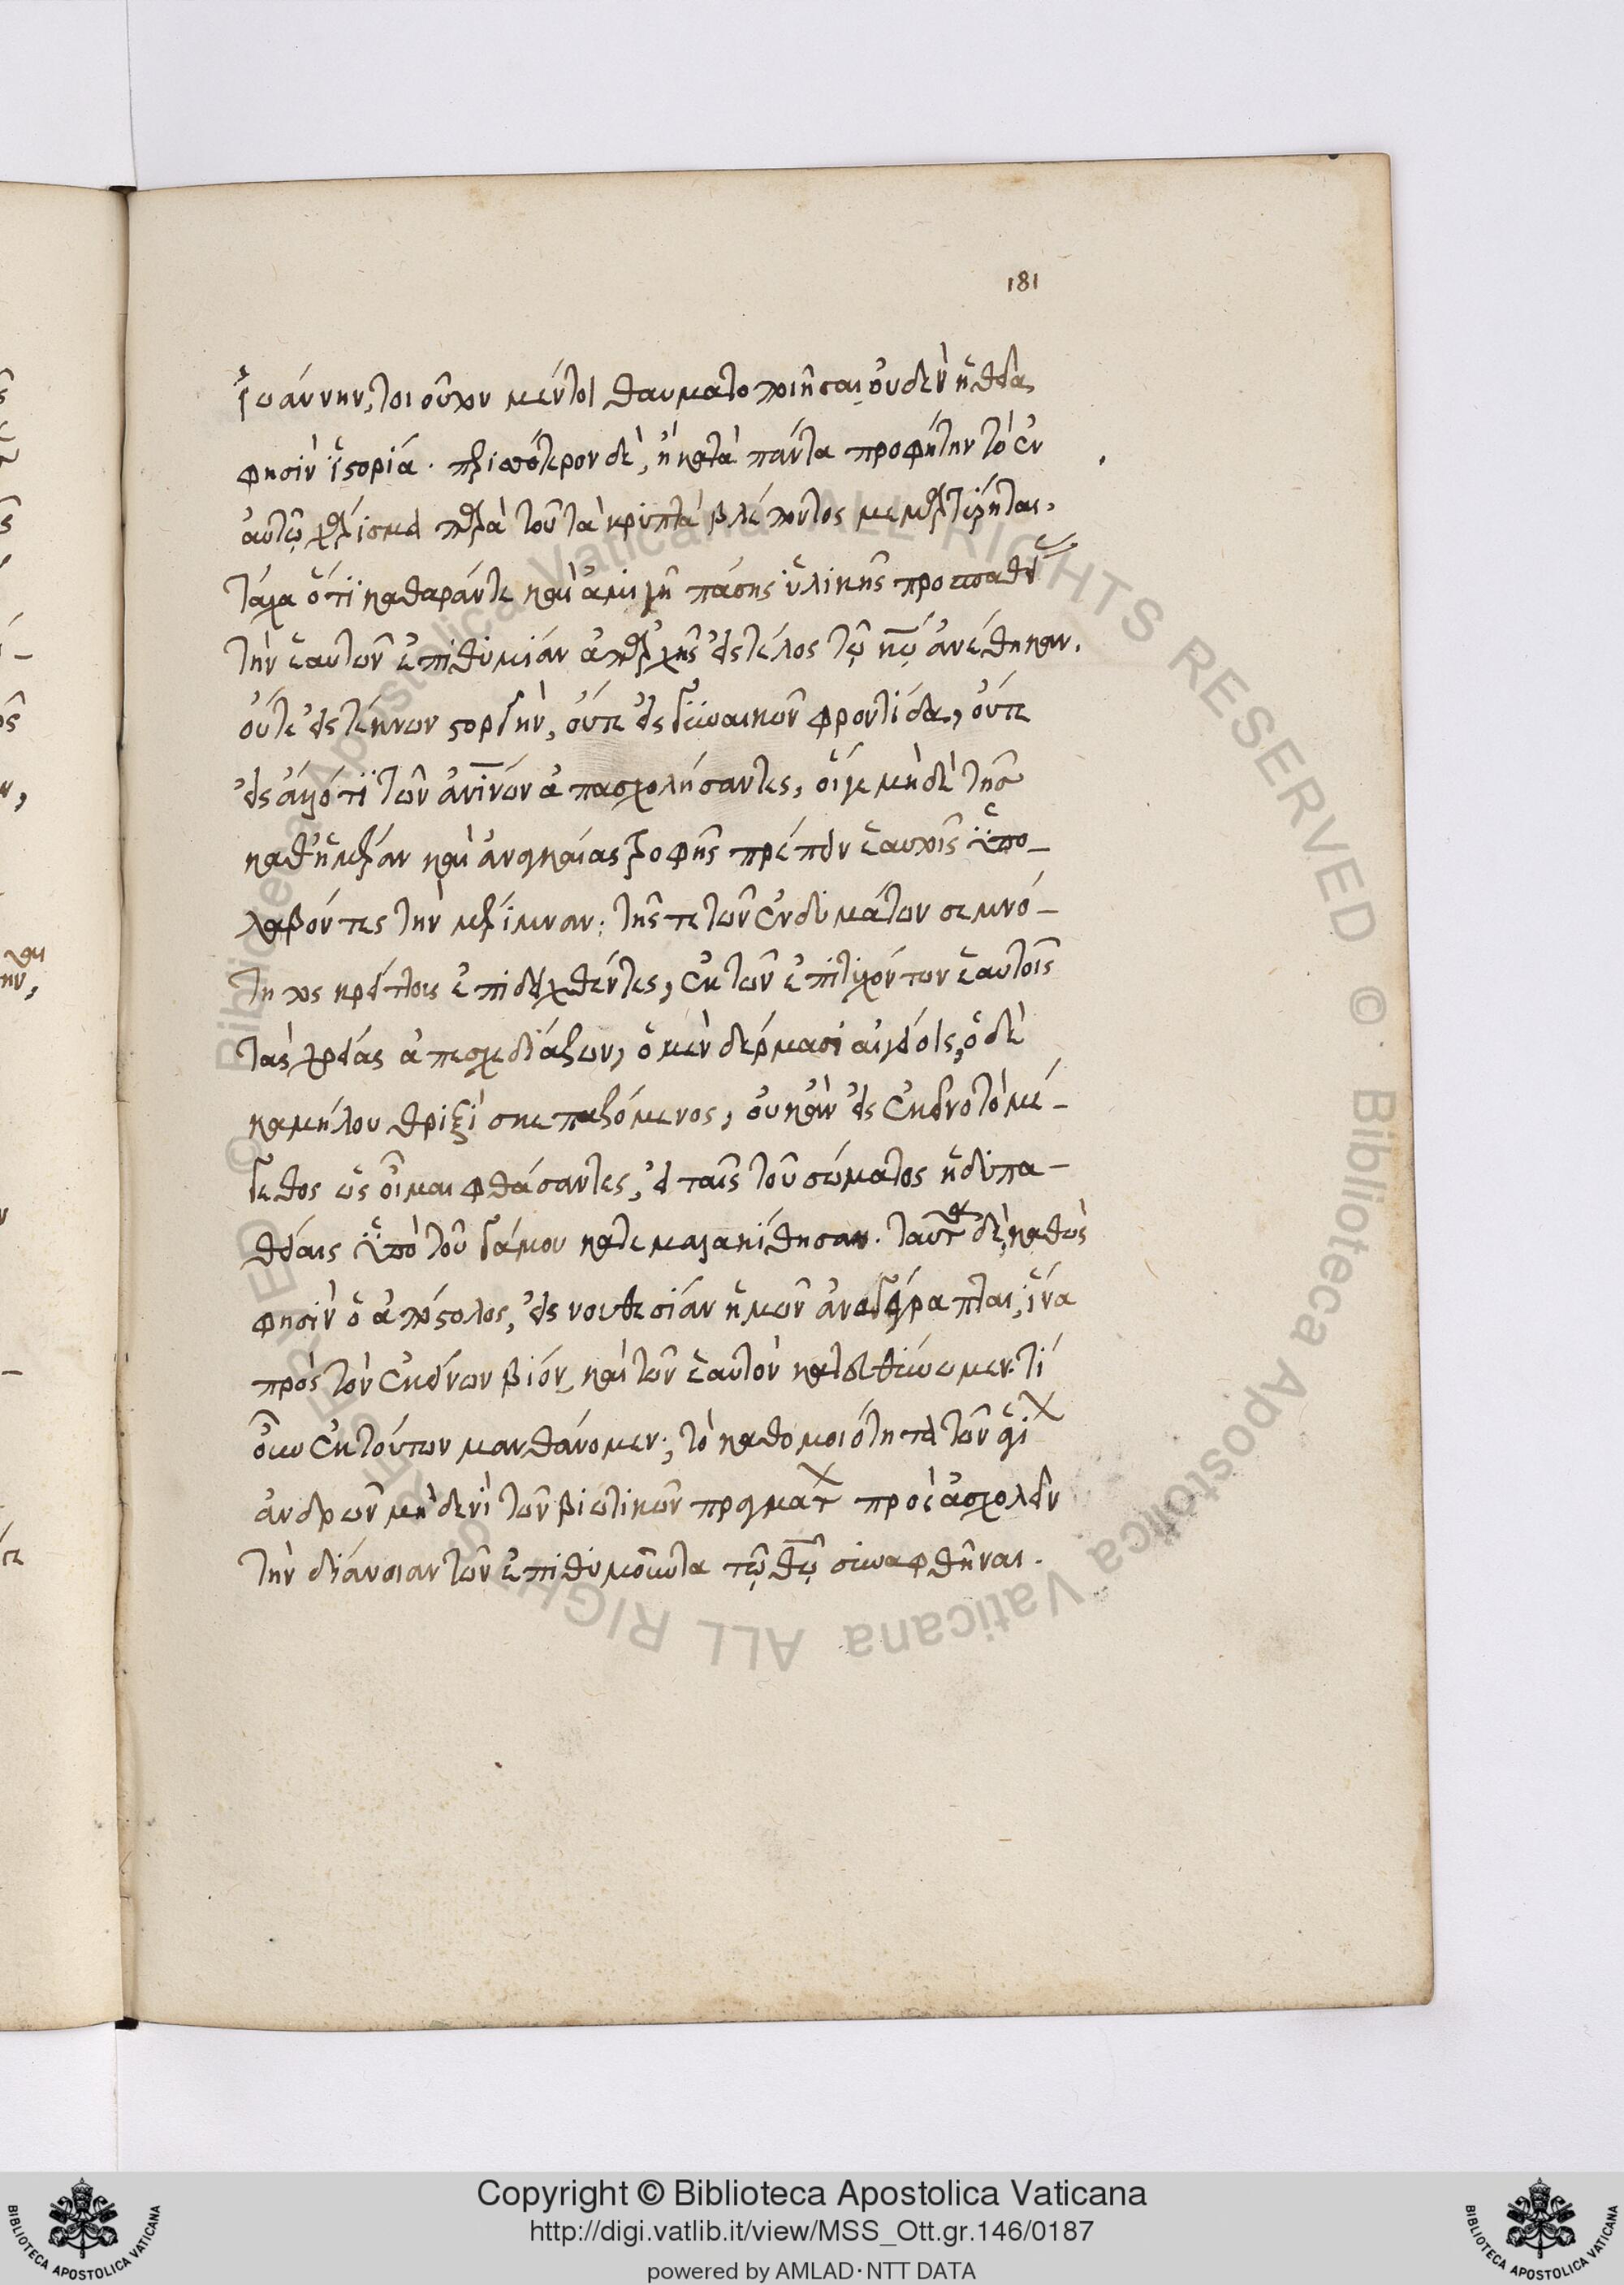 181
Ἰωάννην, τοιοῦτον μέντοι θαυματοποιῆσαι οὐδὲν ἡ θεία
φησὶν ἱστορία. περισσότερον δὲ, ἢ κατὰ πάντα προφήτην τὸ ἐν
αὐτῷ χάρισμα παρὰ τοῦ τὰ κρυπτὰ βλέποντος μεμαρτύρηται.
τάχα ὅτι καθαράν τε καὶ ἀμιγῆ πάσης ὑλικῆς προσπαθείας
τὴν ἑαυτῶν ἐπιθυμίαν ἀπαρχῆς εἰς τέλος τῷ κ̅ῷ ἀνέθηκαν.
οὔτε εἰς τέκνων στοργὴν, οὔτε εἰς γυναικῶν φροντίδα, οὔτε
εἰς ἄλλό τι τῶν ἀνίνων ἀπασχολήσαντες, οἵγε μηδὲ τῆς
καθἡμέραν καὶ ἀναγκαίας τροφῆς πρέπειν ἑαυτοῖς ὑπο-
λαβόντες τὴν μέριμναν. τῆς τε τῶν ἐνδυμάτων σεμνό-
τητος κρείττους ἐπιδειχθέντες, ἐκ τῶν ἐπιτυχόντων ἑαυτοῖς
τὰς χρείας ἀπεσχεδίαζον, ὁ μὲν δέρμασι αἰγείοις, ὁ δὲ
καμήλου θριξὶ σκεπαζόμενος, οὐκ ἂν εἰς ἐκεῖνο τὸ μέ-
γεθος ὡς οἶμαι φθάσαντες, εἰ ταῖς τοῦ σώματος ἡδυπα-
θείαις ὑπὸ τοῦ γάμου κατεμαλακίσθησαν. ταῦτα δὲ, καθὼς
φησὶν ὁ ἀπόστολος, εἰς νουθεσίαν ἡμῶν ἀναγέγραπται, ἵνα
πρὸς τὸν ἐκείνων βίον, καὶ τὸν ἑαυτὸν κατευθύνωμεν. τί
οὖν ἐκ τούτων μανθάνομεν; τὸ καθομοιότητα τῶν ἁγίων
ἀνδρῶν μηδενὶ τῶν βιωτικῶν πραγμάτων προσασχολεῖν
τὴν διάνοιαν τὸν ἐπιθυμοῦντα τῷ θῷ συναφθῆναι.
Copyright © Biblioteca Apostolica Vaticana
http://digi.vatlib.it/view/MSS_Ott.gr.146/0187
powered by AMLAD·NTT DATA